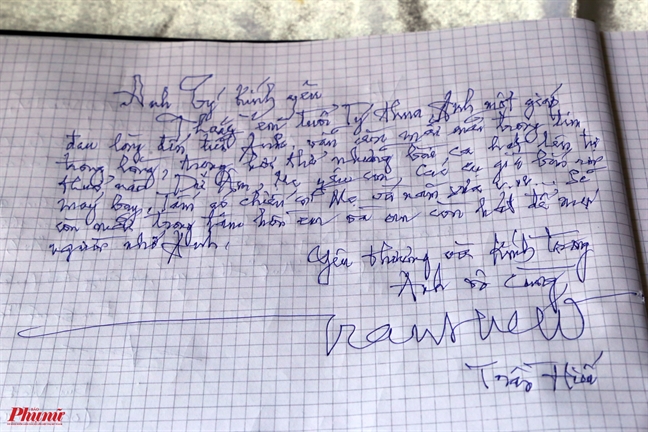 Anh Tý kính yêu
Thằng em tuổi Tý thua Anh một giáp
đau lòng đến tiễn Anh. vẫn còn mãi mãi trong tim
trong lòng, trong hơi thở những bài ca hát lên từ
thuở nào. Dư âm, Mẹ yêu con, Các cụ già bắn rơi
máy bay, Tấm áo chiến sĩ Mẹ vá năm xưa v.v... Sẽ
còn mãi trong tâm hồn em và em còn hát để mọi
người nhớ Anh.
Yêu thương và kính trọng
Anh vô cùng
Trần Hiếu
Phụ nữ